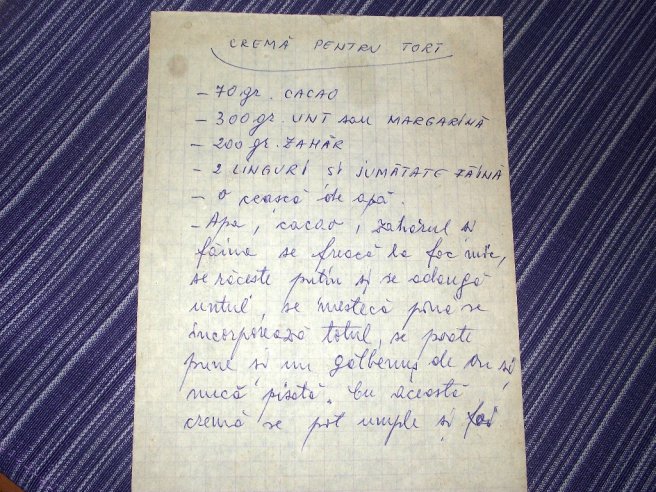 CREMĂ PENTRU TORT
– 70 gr. CACAO
– 300 gr. UNT sau MARGARINĂ
– 200 gr. ZAHĂR
– 2 LINGURI și JUMĂTATE FĂINĂ
– O ceașcă de apă.
– Apa, cacao, zahărul și
făina se freacă la foc mic,
se răcește puțin și se adaugă
untul, se mestecă pînă se
incorporează totul, se poate
pune și un gălbenuș de ou și
nucă pisată. Cu această
cremă se pot umple și